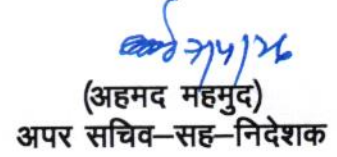 7/4/26
(अहमद महमुद)
अपर सचिव–सह–निदेशक